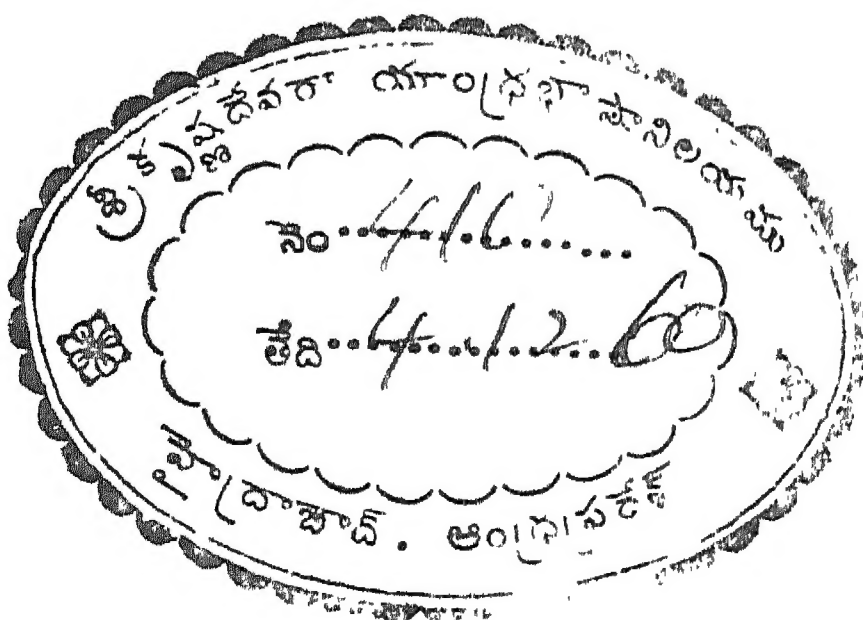 శ్రీ కృష్ణదేవరా యాంధ్రభాషానిలయము
నెం
తేది 4.12.60
హైద్రాబాద్. ఆంధ్రప్రదేశ్